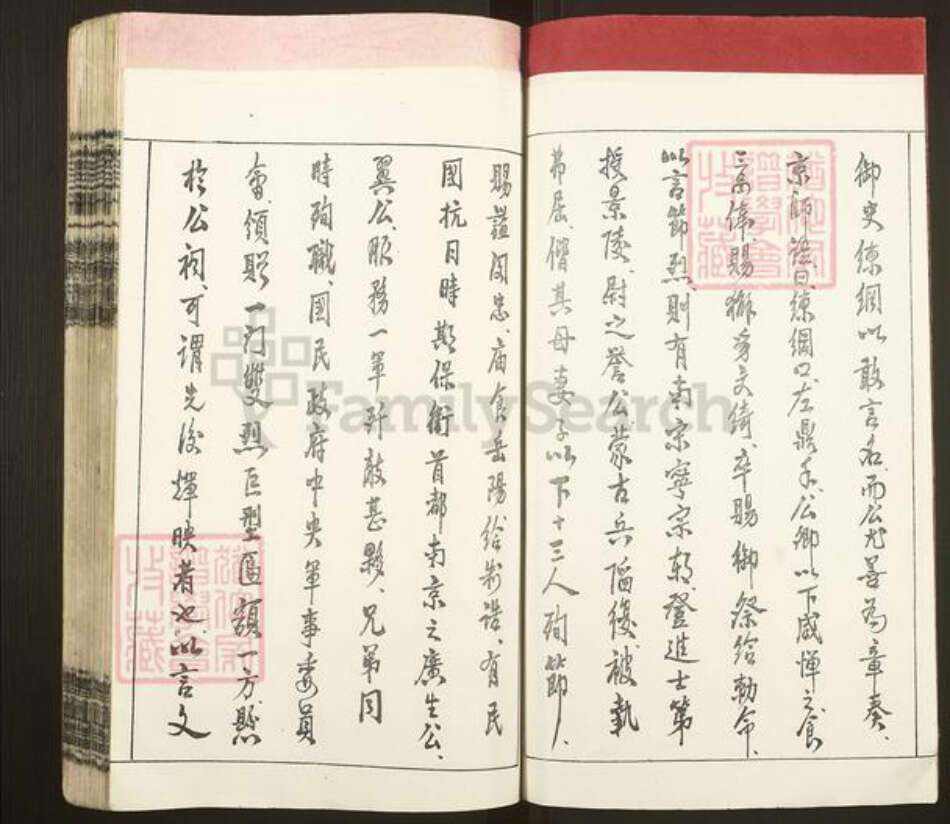 御史練綱以敢言名、而公尤善為章奏、
京師諺曰、練綱口左鼎手、公卿以下咸憚之、食
三品俸、賜獬豸文綺、卒賜御祭給勅命、
以言節烈、則有南宋寧宗朝、登進士第
授景陵尉之譽公、蒙古兵陷復被執
弗屈、偕其母妻子以下十三人殉節、
賜諡閔忠、庙食岳陽给制誥、有民
國抗日時期保衛首都南京之廣生公、
翼公、服務一軍歼敵甚夥、兄弟同
時殉職、國民政府中央軍事委員
會、頒贈一门雙烈巨型匾額一方懸
於公祠、可謂先後輝映者也、以言文
FamilySearch
收藏
收藏